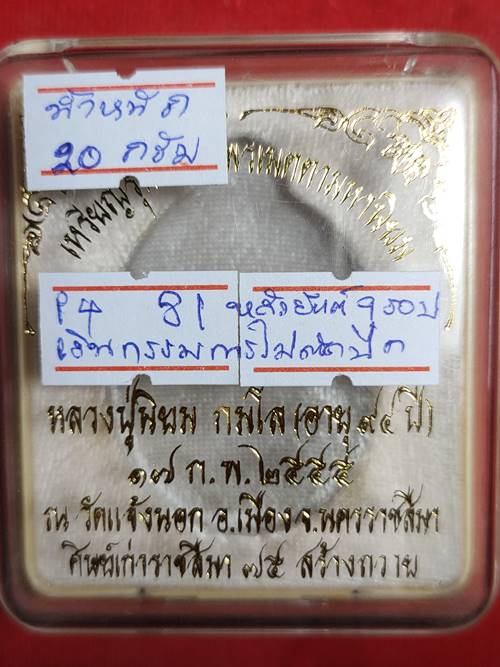 น้ำหนัก
20 กรัม
เหรียญ
เมตตามหานิยม
P4 81 หลังยันต์ 9 รอบ
เงินกรรมการไม่ตัดปีก
หลวงปู่นิยม กมโล (อายุ ๙๔ ปี)
๑๗ ก.พ. ๒๕๕๕
ณ วัดแจ้งนอก อ.เมือง จ.นครราชสีมา
ศิษย์เก่าราชสีมา ๗๕ สร้างถวาย